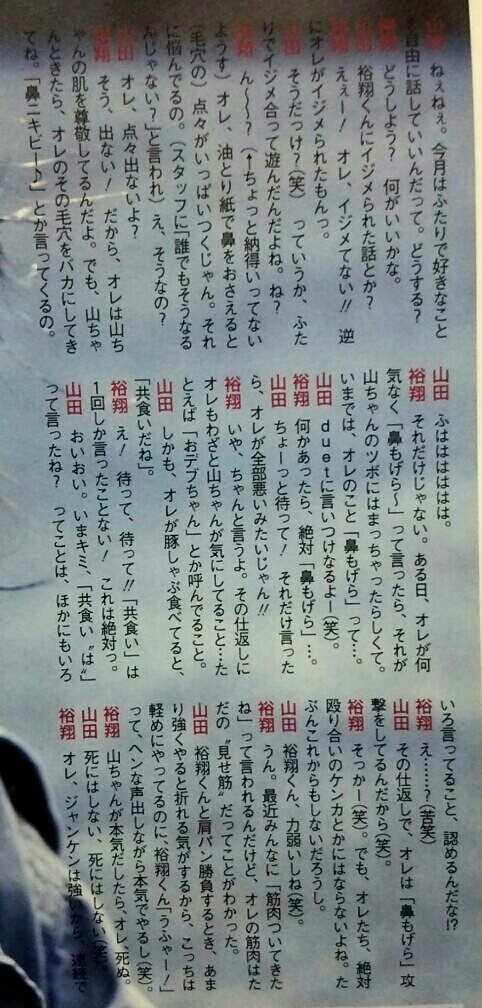 山田　ねぇねぇ。今月はふたりで好きなこと
を自由に話していいんだって。どうする？
裕翔　どうしよう？　何がいいかな。
山田　裕翔くんにイジメられた話とか？
裕翔　えぇー！　オレ、イジメてない!!　逆
にオレがイジメられたもんっ。
山田　そうだっけ？（笑）　っていうか、ふた
りでイジメ合って遊んだんだよね。ね？
裕翔　ん〜〜？（↑ちょっと納得いってない
ようす）オレ、油とり紙で鼻をおさえると
（毛穴の）点々がいっぱいつくじゃん。それ
に悩んでるの。（スタッフに「誰でもそうなる
んじゃない？」と言われ）え、そうなの？
山田　オレ、点々出ないよ？
裕翔　そう、出ない！　だから、オレは山ち
ゃんの肌を尊敬してるんだよ。でも、山ちゃ
んときたら、オレのその毛穴をバカにしてき
てね。「鼻ニキビ〜♪」とか言ってくるの。
山田　ふはははははは。
裕翔　それだけじゃない。ある日、オレが何
気なく「鼻もげら〜」って言ったら、それが
山ちゃんのツボにはまっちゃったらしくて。
いまでは、オレのこと「鼻もげら」って…。
山田　ｄｕｅｔに言いつけるなよー（笑）。
裕翔　何かあったら、絶対「鼻もげら」…。
山田　ちょーっと待って！　それだけ言った
ら、オレが全部悪いみたいじゃん!!
裕翔　いや、ちゃんと言うよ。その仕返しに
オレもわざと山ちゃんが気にしてること…た
とえば「おデブちゃん」とか呼んでること。
山田　しかも、オレが豚しゃぶ食べてると、
「共食いだね」。
裕翔　え！　待って、待って!!「共食い」は
１回しか言ったことない！　これは絶対っ。
山田　おいおい。いまキミ、「共食い〝は〟」
って言ったね？　ってことは、ほかにもいろ
いろ言ってること、認めるんだな!?
裕翔　え……？（苦笑）
山田　その仕返しで、オレは「鼻もげら」攻
撃をしてるんだから（笑）。
裕翔　そっかー（笑）。でも、オレたち、絶対
殴り合いのケンカとかにはならないよね。た
ぶんこれからもしないだろうし。
山田　裕翔くん、力弱いしね（笑）。
裕翔　うん。最近みんなに「筋肉ついてきた
ね」って言われるんだけど、オレの筋肉はた
だの〝見せ筋〟だってことがわかった。
山田　裕翔くんと肩パン勝負するとき、あま
り強くやると折れる気がするから、こっちは
軽めにやってるのに、裕翔くん「うふゃー！」
って、ヘンな声出しながら本気でやるし（笑）。
裕翔　山ちゃんが本気だしたら、オレ、死ぬ。
山田　死にはしない、死にはしない（笑）。
裕翔　オレ、ジャンケンは強いから、連続で